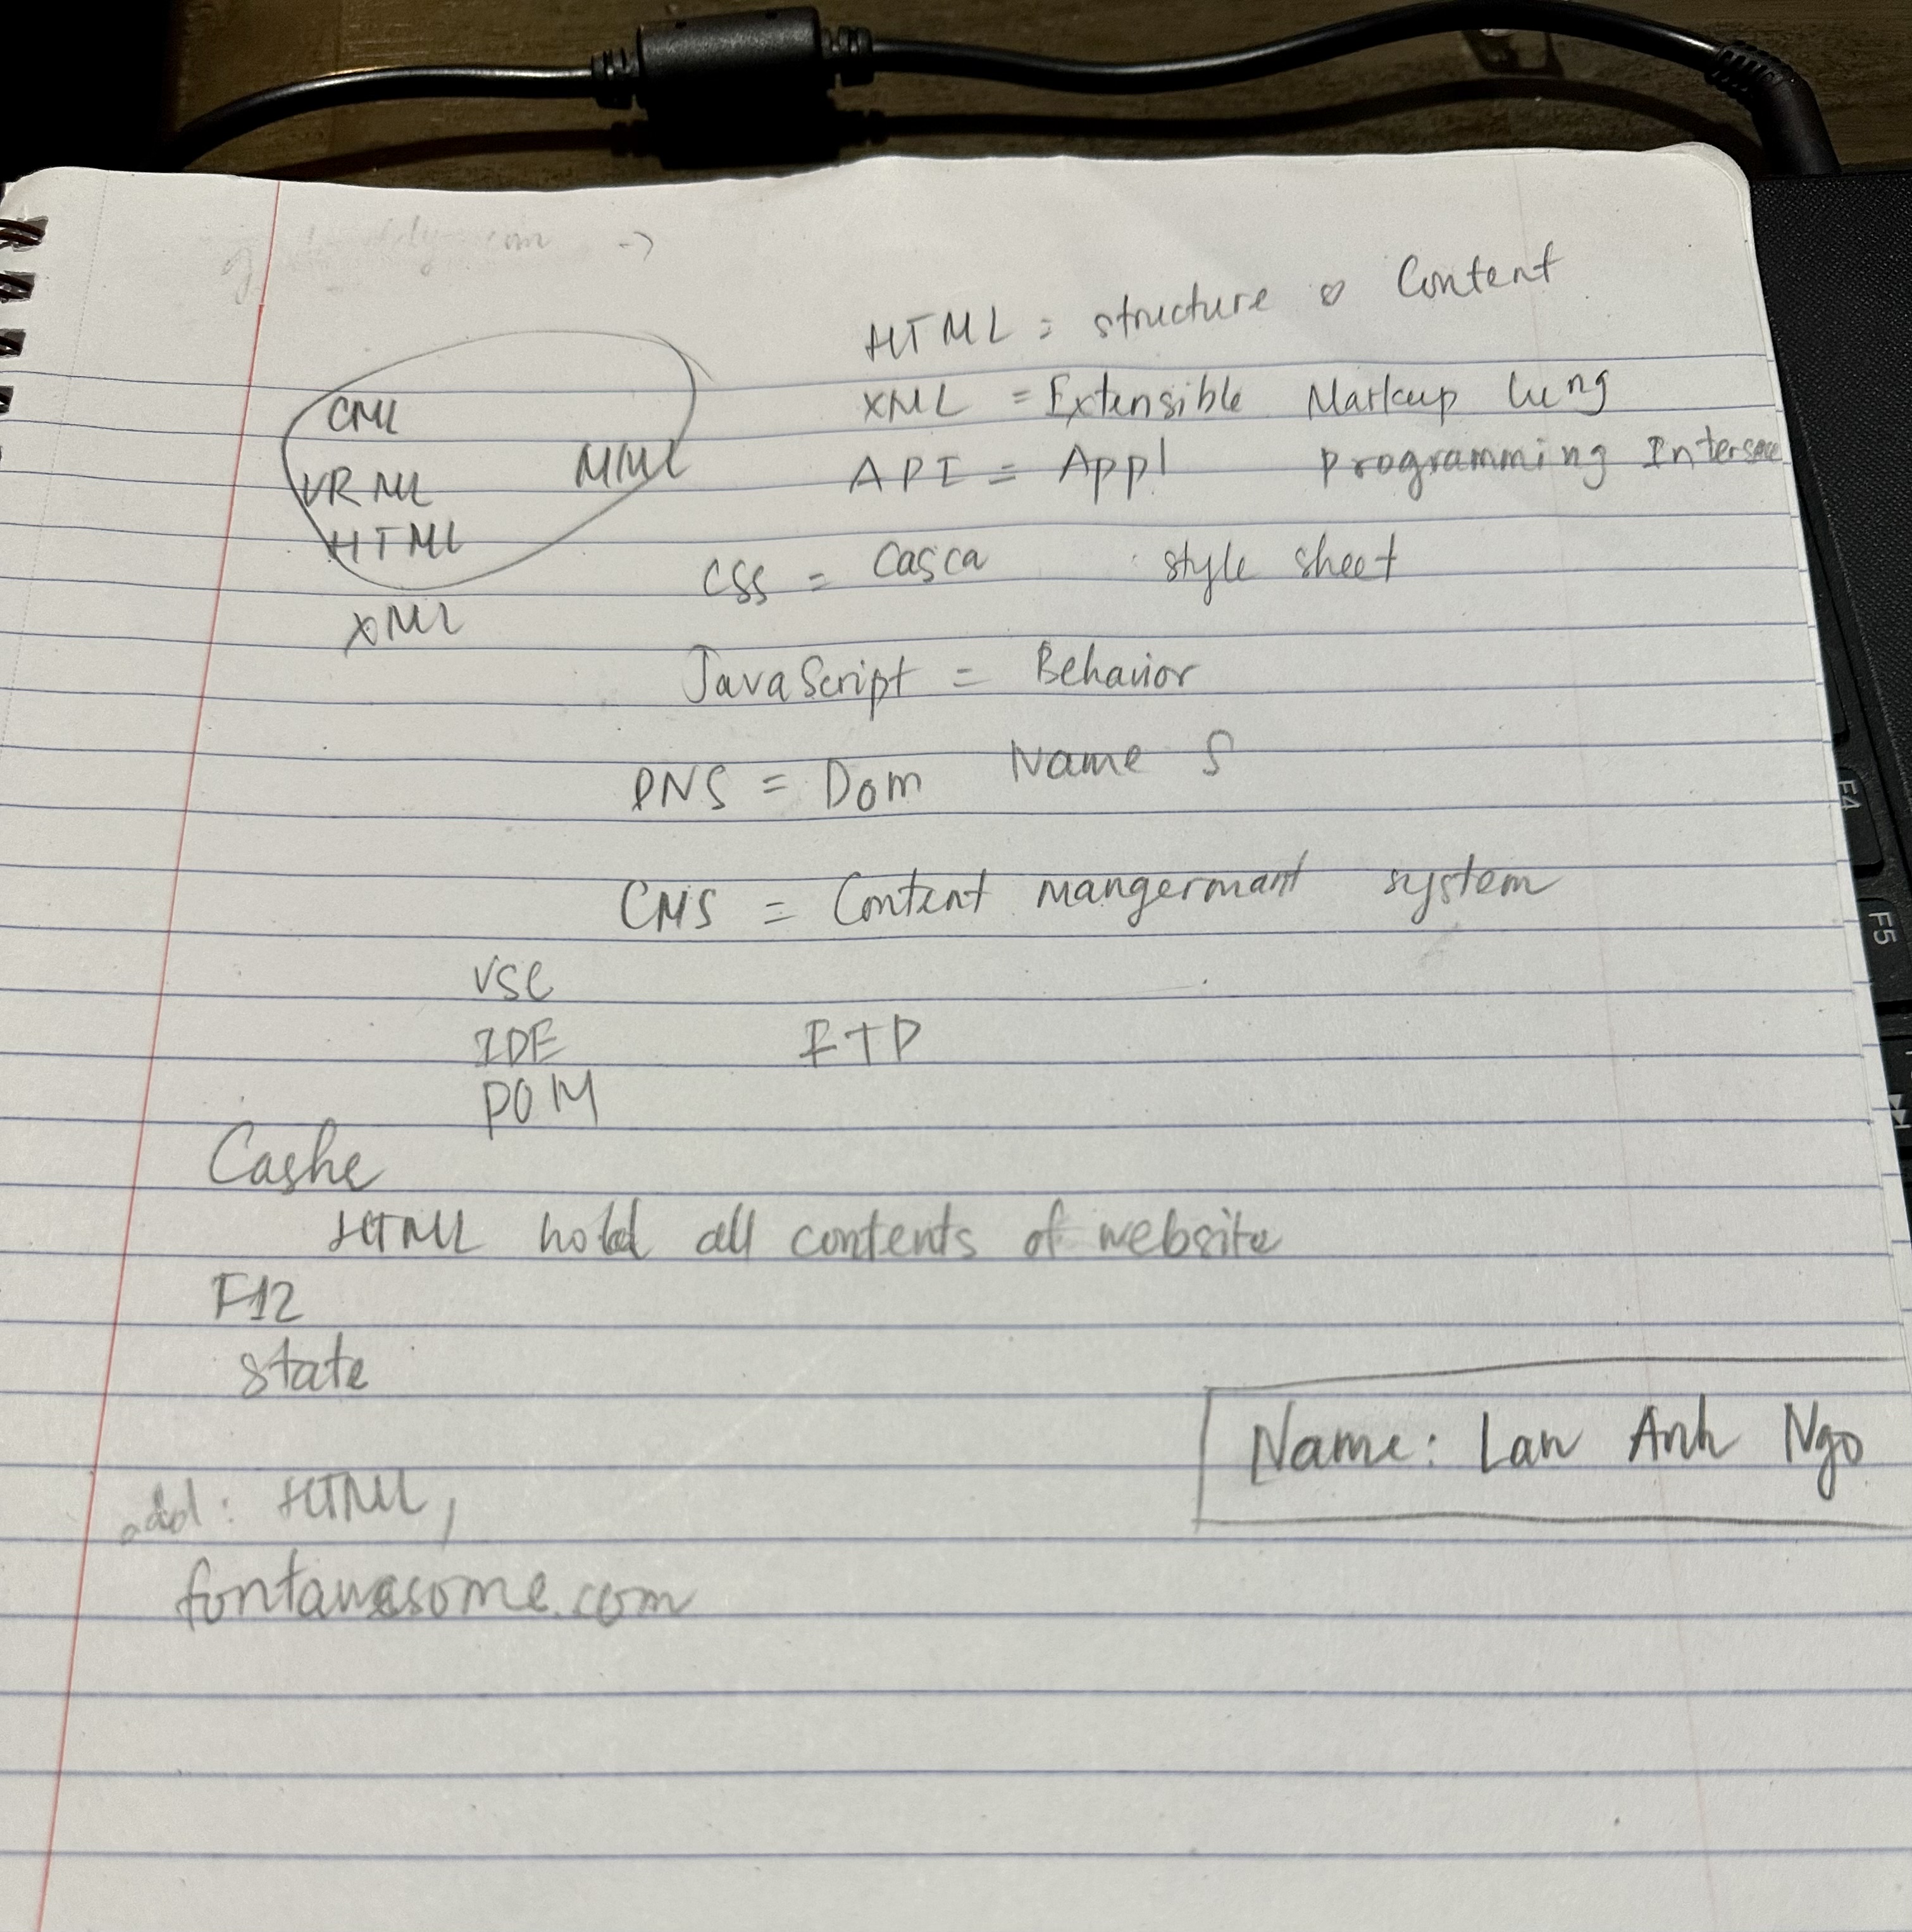 HTML = structure & Content
CML
XML = Extensible Markup lung
MML
API = Appl Programming Intersace
VRML
HTML
CSS = Casca style sheet
XML
JavaScript = Behavior
DNS = Dom Name S
CMS = Content mangermant system
VSC
IDE FTP
DOM
Cashe
HTML hold all contents of website
F12
state
Name: Lan Anh Ngo
add: HTML,
fontawesome.com
F4
F5